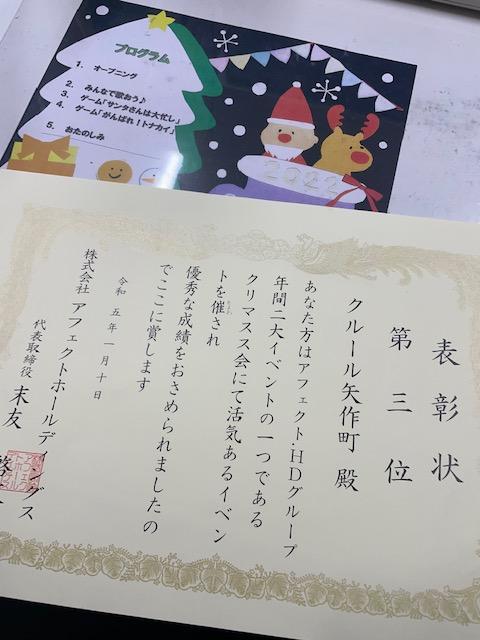 プログラム
1. オープニング
2. みんなで歌おう♪
3. ゲーム「サンタさんは大忙し」
4. ゲーム「がんばれ！トナカイ」
5. おたのしみ
2022
表彰状
第三位
クルール矢作町 殿
あなた方はアフェクト･HDグループ
年間二大イベントの一つである
クリマスス会にて活気あるイベン
トを催され
優秀な成績をおさめられましたの
でここに賞します
令和五年一月十日
株式会社 アフェクトホールディングス
代表取締役 末友